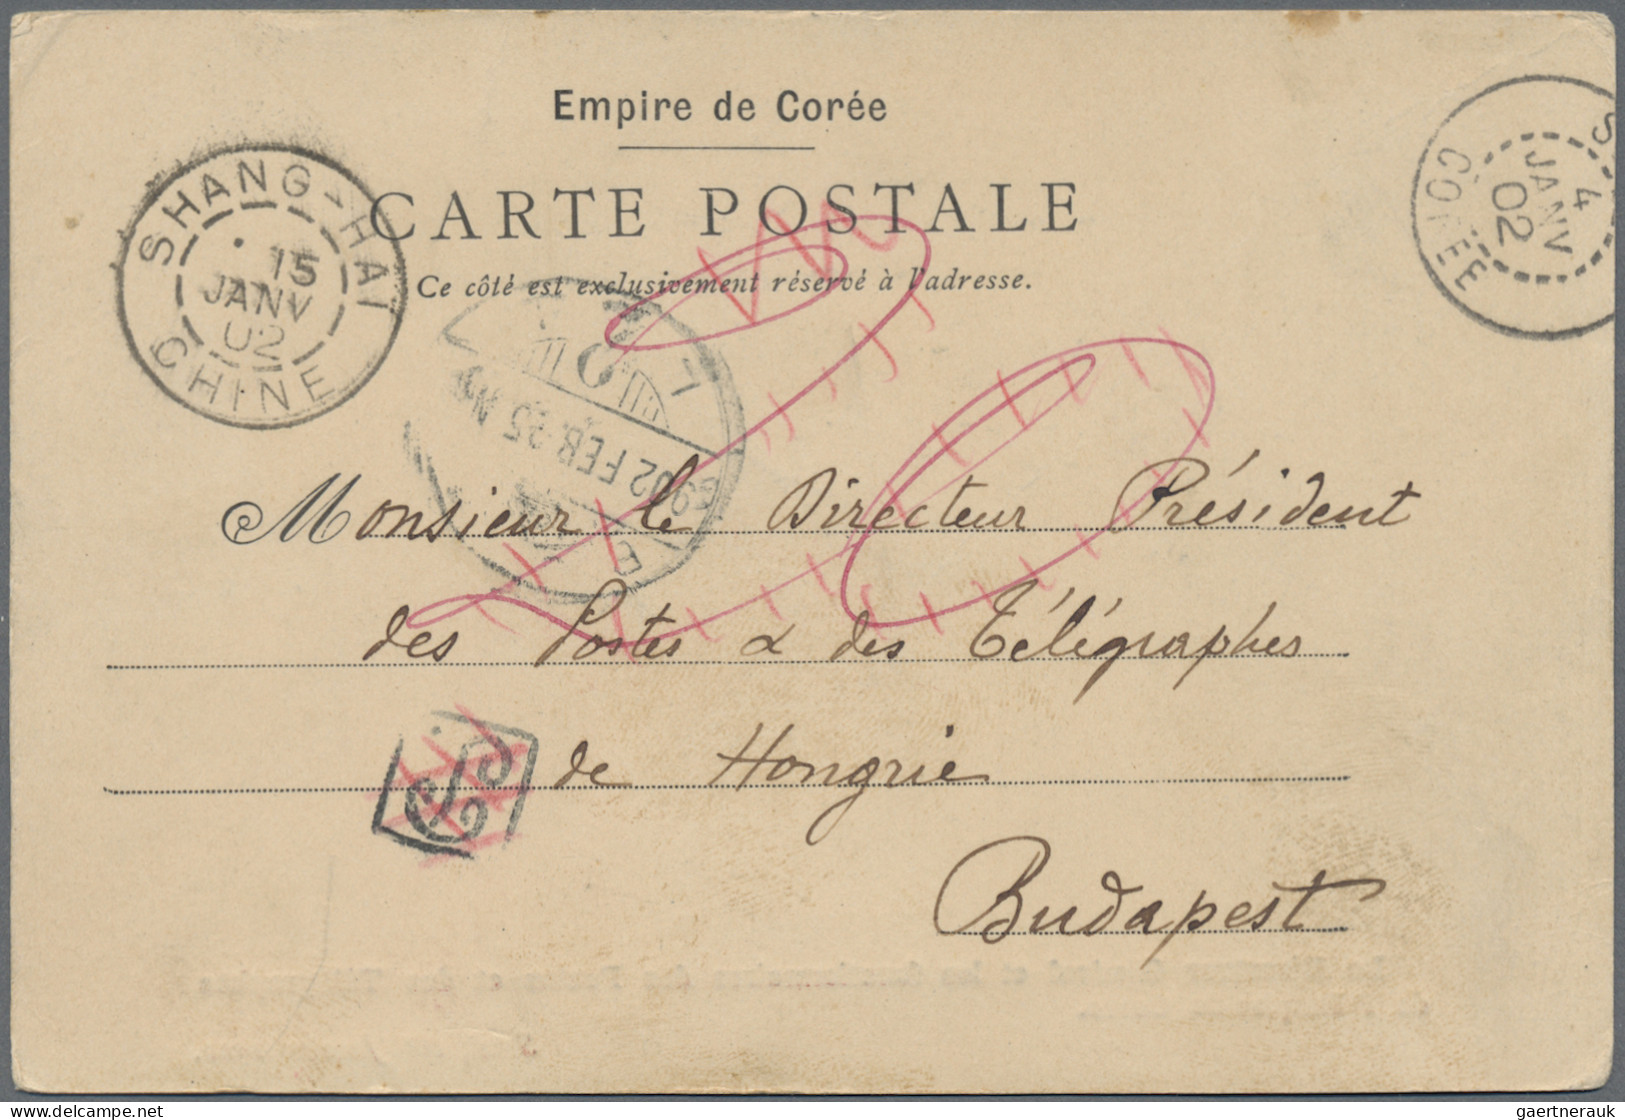 Empire de Corée
CARTE POSTALE
Ce côté est exclusivement réservé à l'adresse.
SHANG-HAI
15
JANV
02
CHINE
4
JANV
02
CORÉE
902 FEB. 25
Monsieur le Directeur Président
des Postes & des Télégraphes
de Hongrie
Budapest
hippostcard.com
gaertnerauk